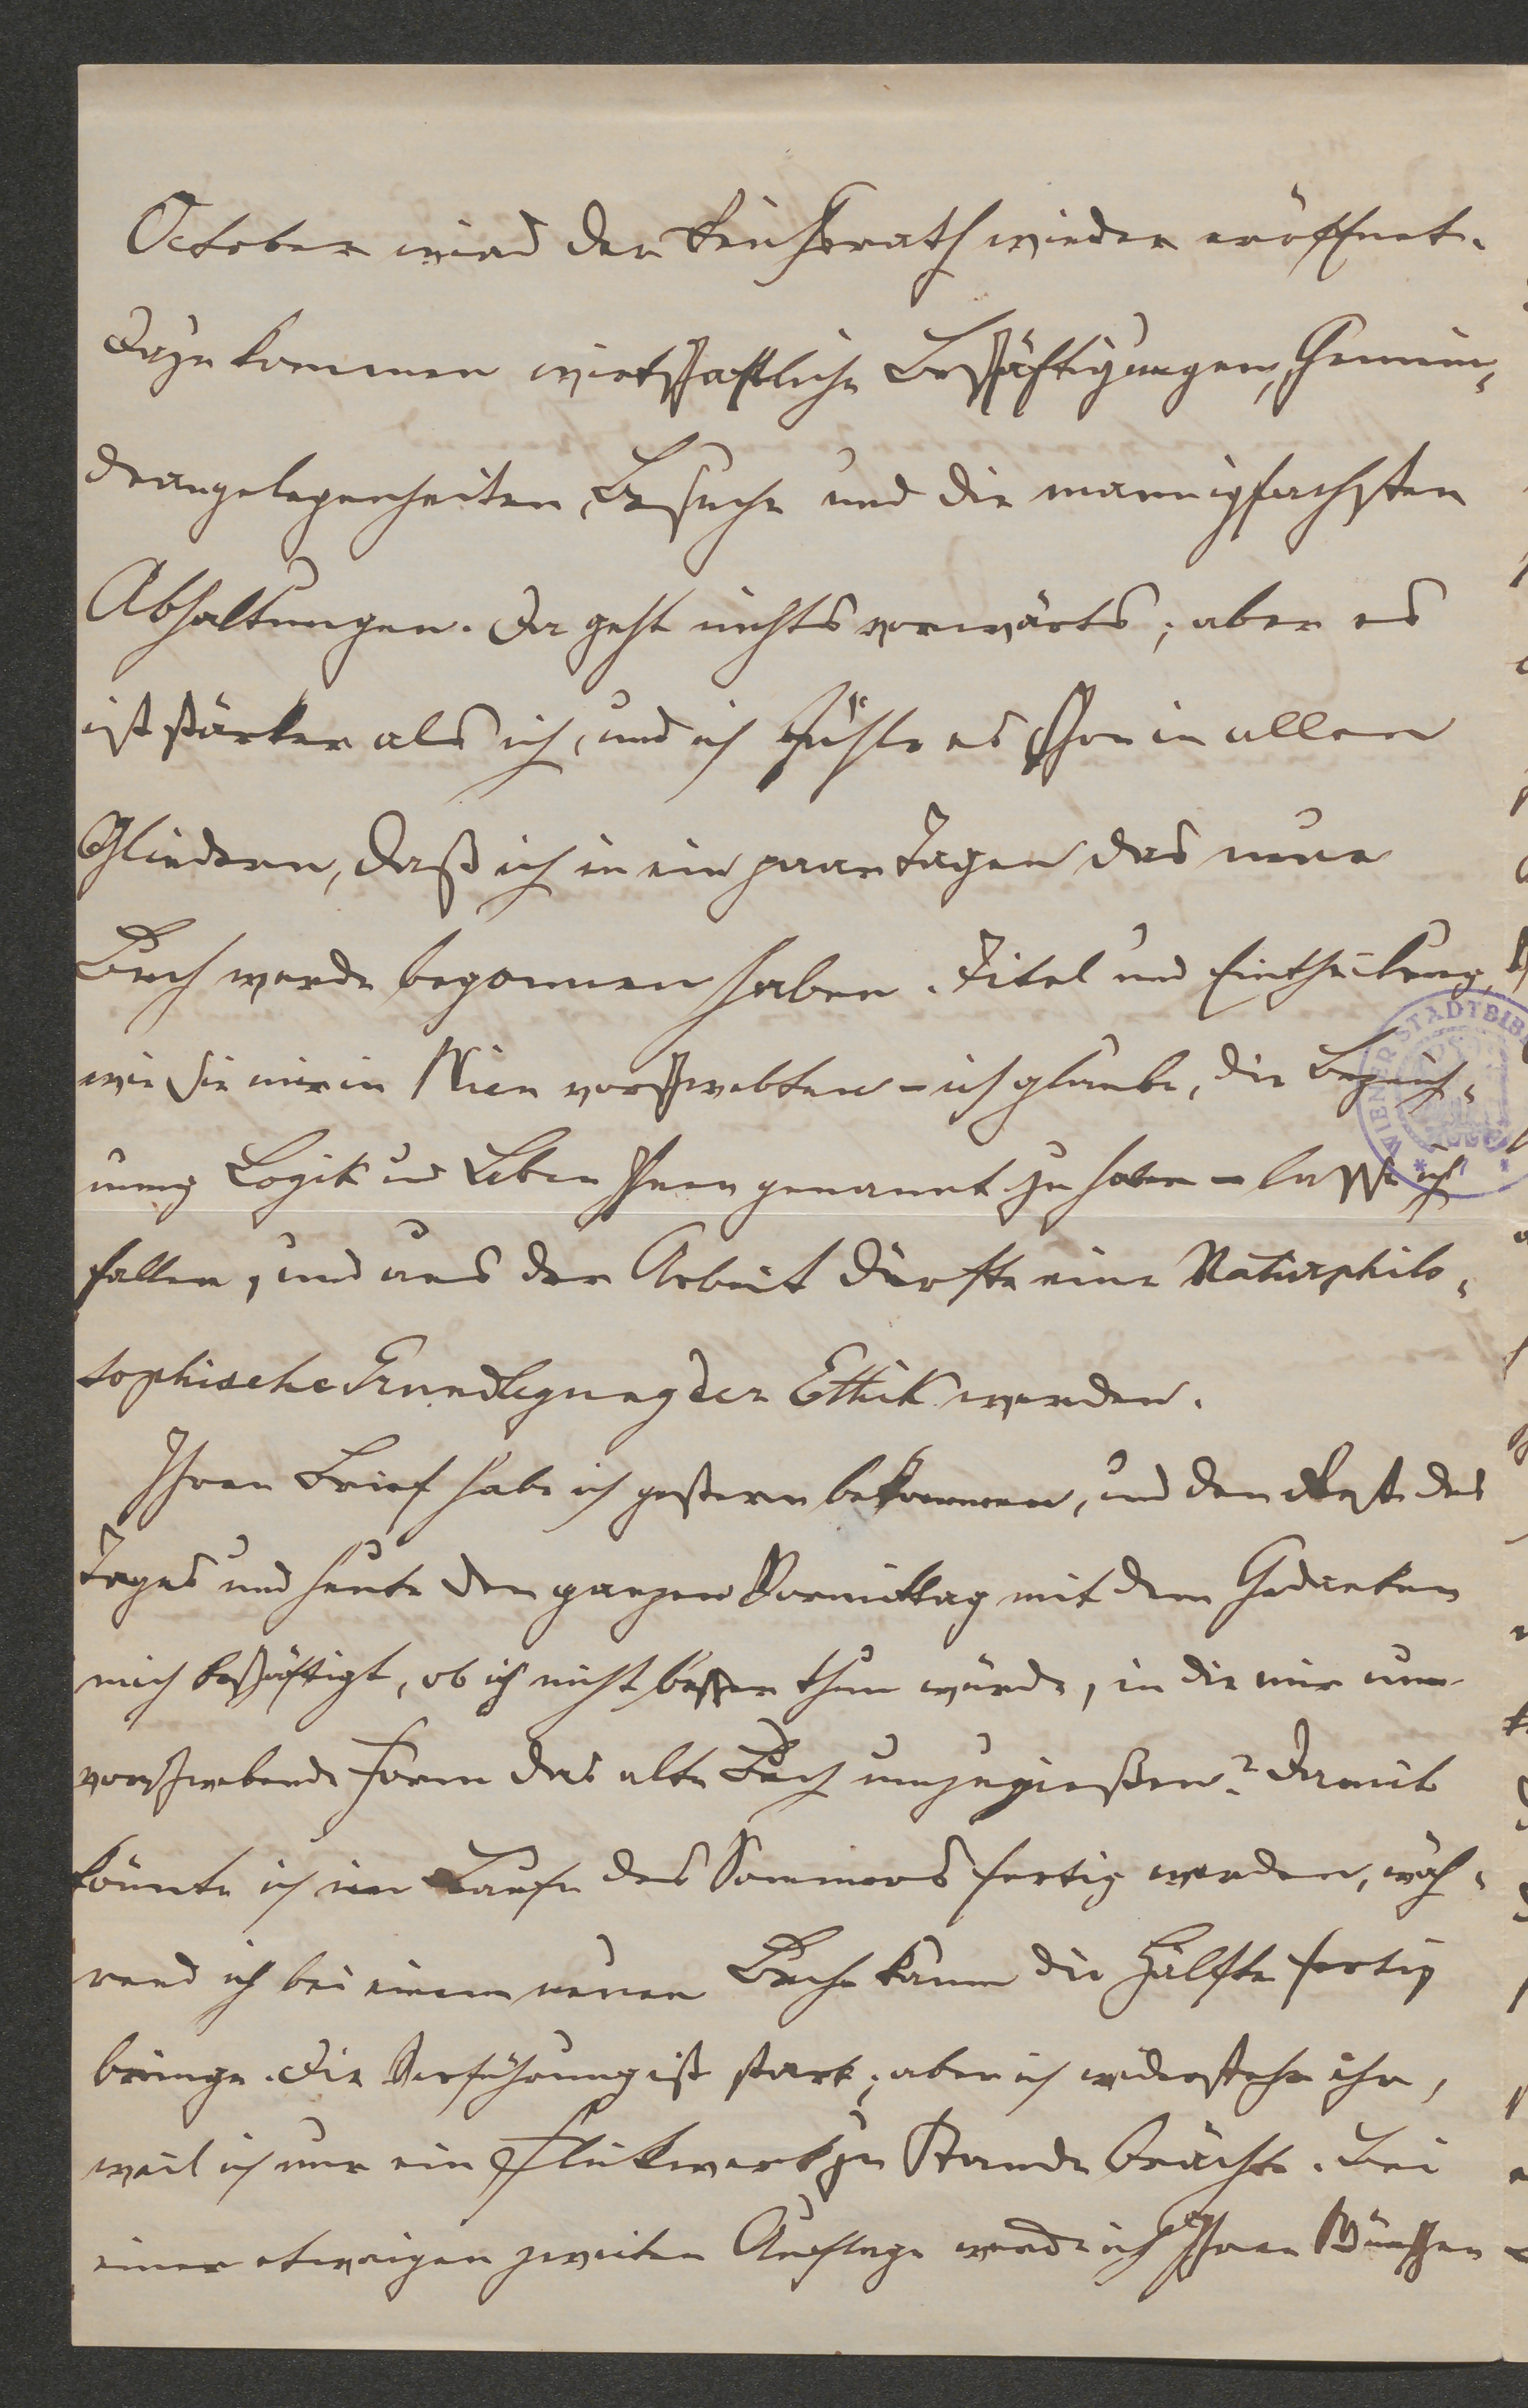 October wird der Reichsrath wieder eröffnet.
Dazu kommen wirtschaftliche Beschäftigungen, Gemein-
deangelegenheiten, Besuche und die mannigfachsten
Abhaltungen. Da geht nichts vorwärts; aber es
ist stärker als ich, und ich fühle es schon in allen
Gliedern, daß ich in ein paar Tagen das neue
Buch werde begonnen haben. Titel und Eintheilung,
wie sie mir in Wien vorschwebten – ich glaube, die Bezeich-
nung Logik und Leben Ihnen genannt zu haben – lasse ich
fallen, und aus der Arbeit dürfte eine Naturphilo-
sophische Grundlegung der Ethik werden.
Ihren Brief habe ich gestern bekommen, und den Rest des
Tages und heute den ganzen Vormittag mit dem Gedanken
mich beschäftigt, ob ich nicht besser thun würde, in die mir nun
vorschwebende Form das alte Buch umzugießen? Damit
könnte ich im Laufe des Sommers fertig werden, wäh-
rend ich bei einem neuen Buche kaum die Hälfte fertig
bringe. Die Verführung ist stark; aber ich widerstehe ihr,
weil ich nur ein Flickwerk zu Stande brächte. Bei
einer etwaigen zweiten Auflage werde ich Ihren Wünschen
WIENER STADTBIB